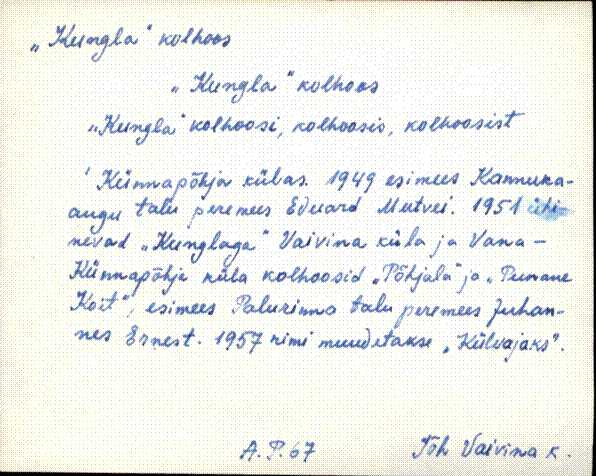 „Kungla" kolhoos
„Kungla" kolhoos
„Kungla" kolhoosi, kolhoosis, kolhoosist
' Künnapõhja külas. 1949 esimees Kannuka-
augu talu peremees Eduard Mutvei. 1951 ühi-
nevad „Kunglaga" Vaivina küla ja Vana-
Künnapõhja küla kolhoosid „Põhjala" ja „Punane
Koit", esimees Palurinna talu peremees Juhan-
nes Ernest. 1957 nimi muudetakse „Külvajaks".
A.P. 67 Jõh Vaivina k.